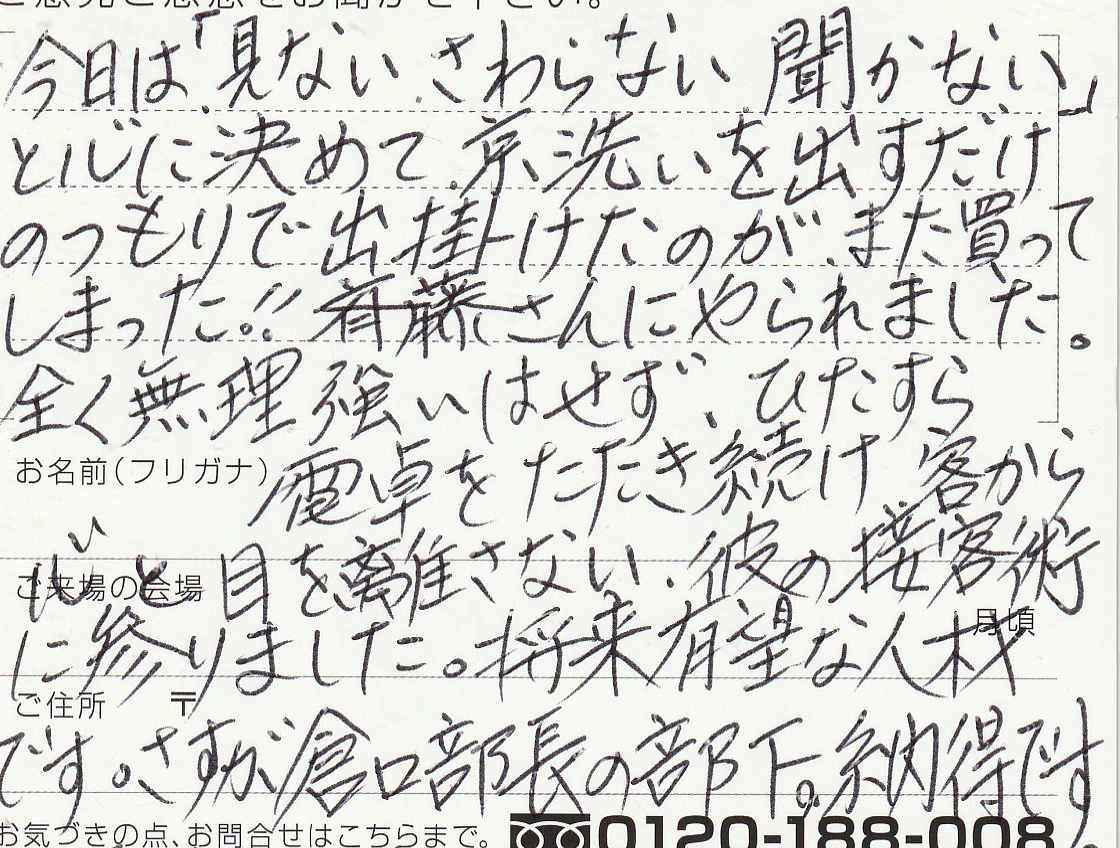 ご意見ご感想をお聞かせ下さい。
今日は「見ない さわらない 聞かない」
と心に決めて、京洗いを出すだけ
のつもりで出掛けたのが、また買って
しまった!! 斉藤さんにやられました。
全く無理強いはせず、ひたすら
お名前(フリガナ)
電卓をたたき続け 客から
じっと目を離さない、彼の接客術
ご来場の会場
月頃
に参りました。将来有望な人材
ご住所 〒
です。さすが倉口部長の部下。納得です。
お気づきの点、お問合せはこちらまで。 0120-188-008